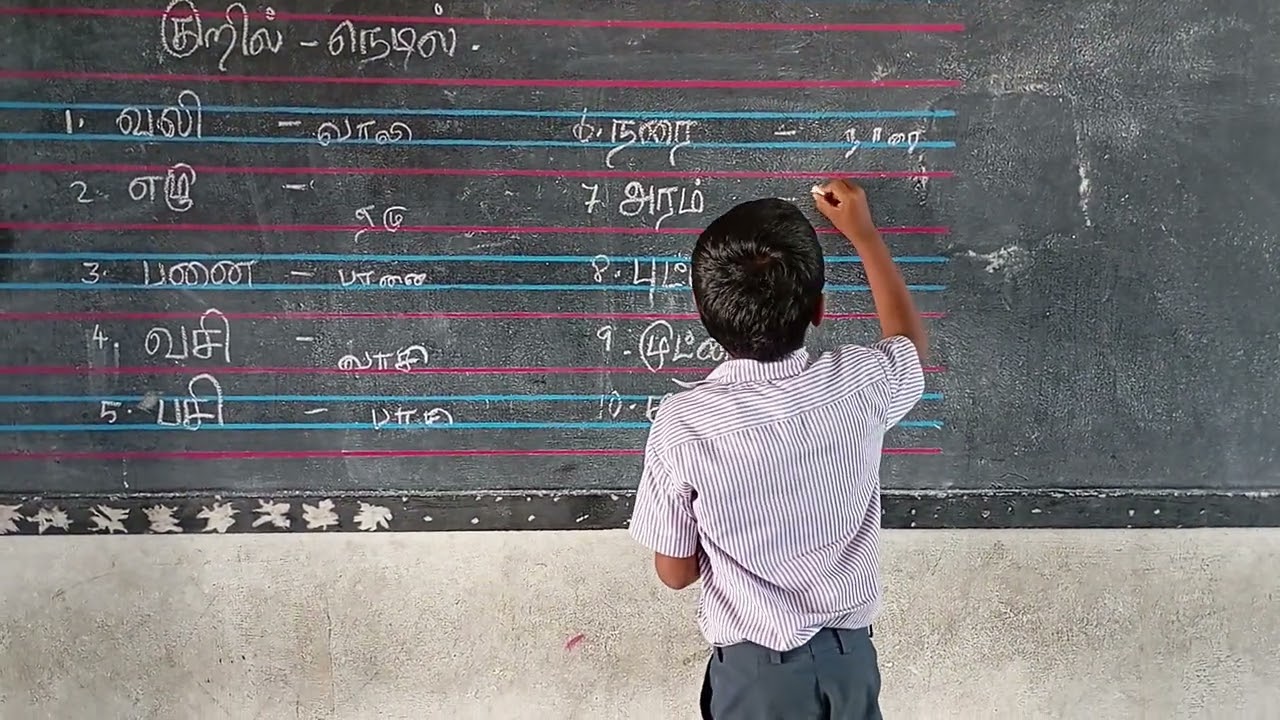 குறில் - நெடில்.
1. வலி - வாலி
2. எழு - ஏழு
3. பனை - பானை
4. வசி - வாசி
5. பசி - பாசி
6. நரை - நாரை
7. அரம் -
8.
9.
10.